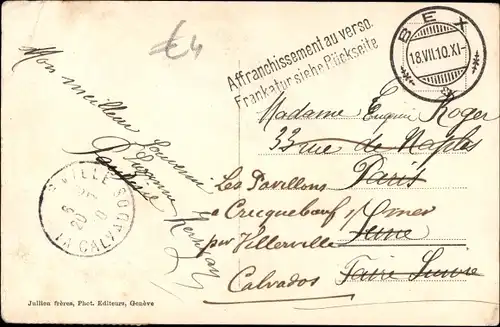 £4
Affranchissement au verso.
Frankatur siehe Rückseite
BEX
18.VII.10.XI-
Mon meilleur
souvenir
Eugénie
Madame Eugénie Roger
33 rue de Naples
Paris
Seine
Faire Suivre
Les Pavillons
a Cricquebœuf
par Villerville
Calvados
VILLE
20
CALVADOS
Jullien frères, Phot. Editeurs, Genève